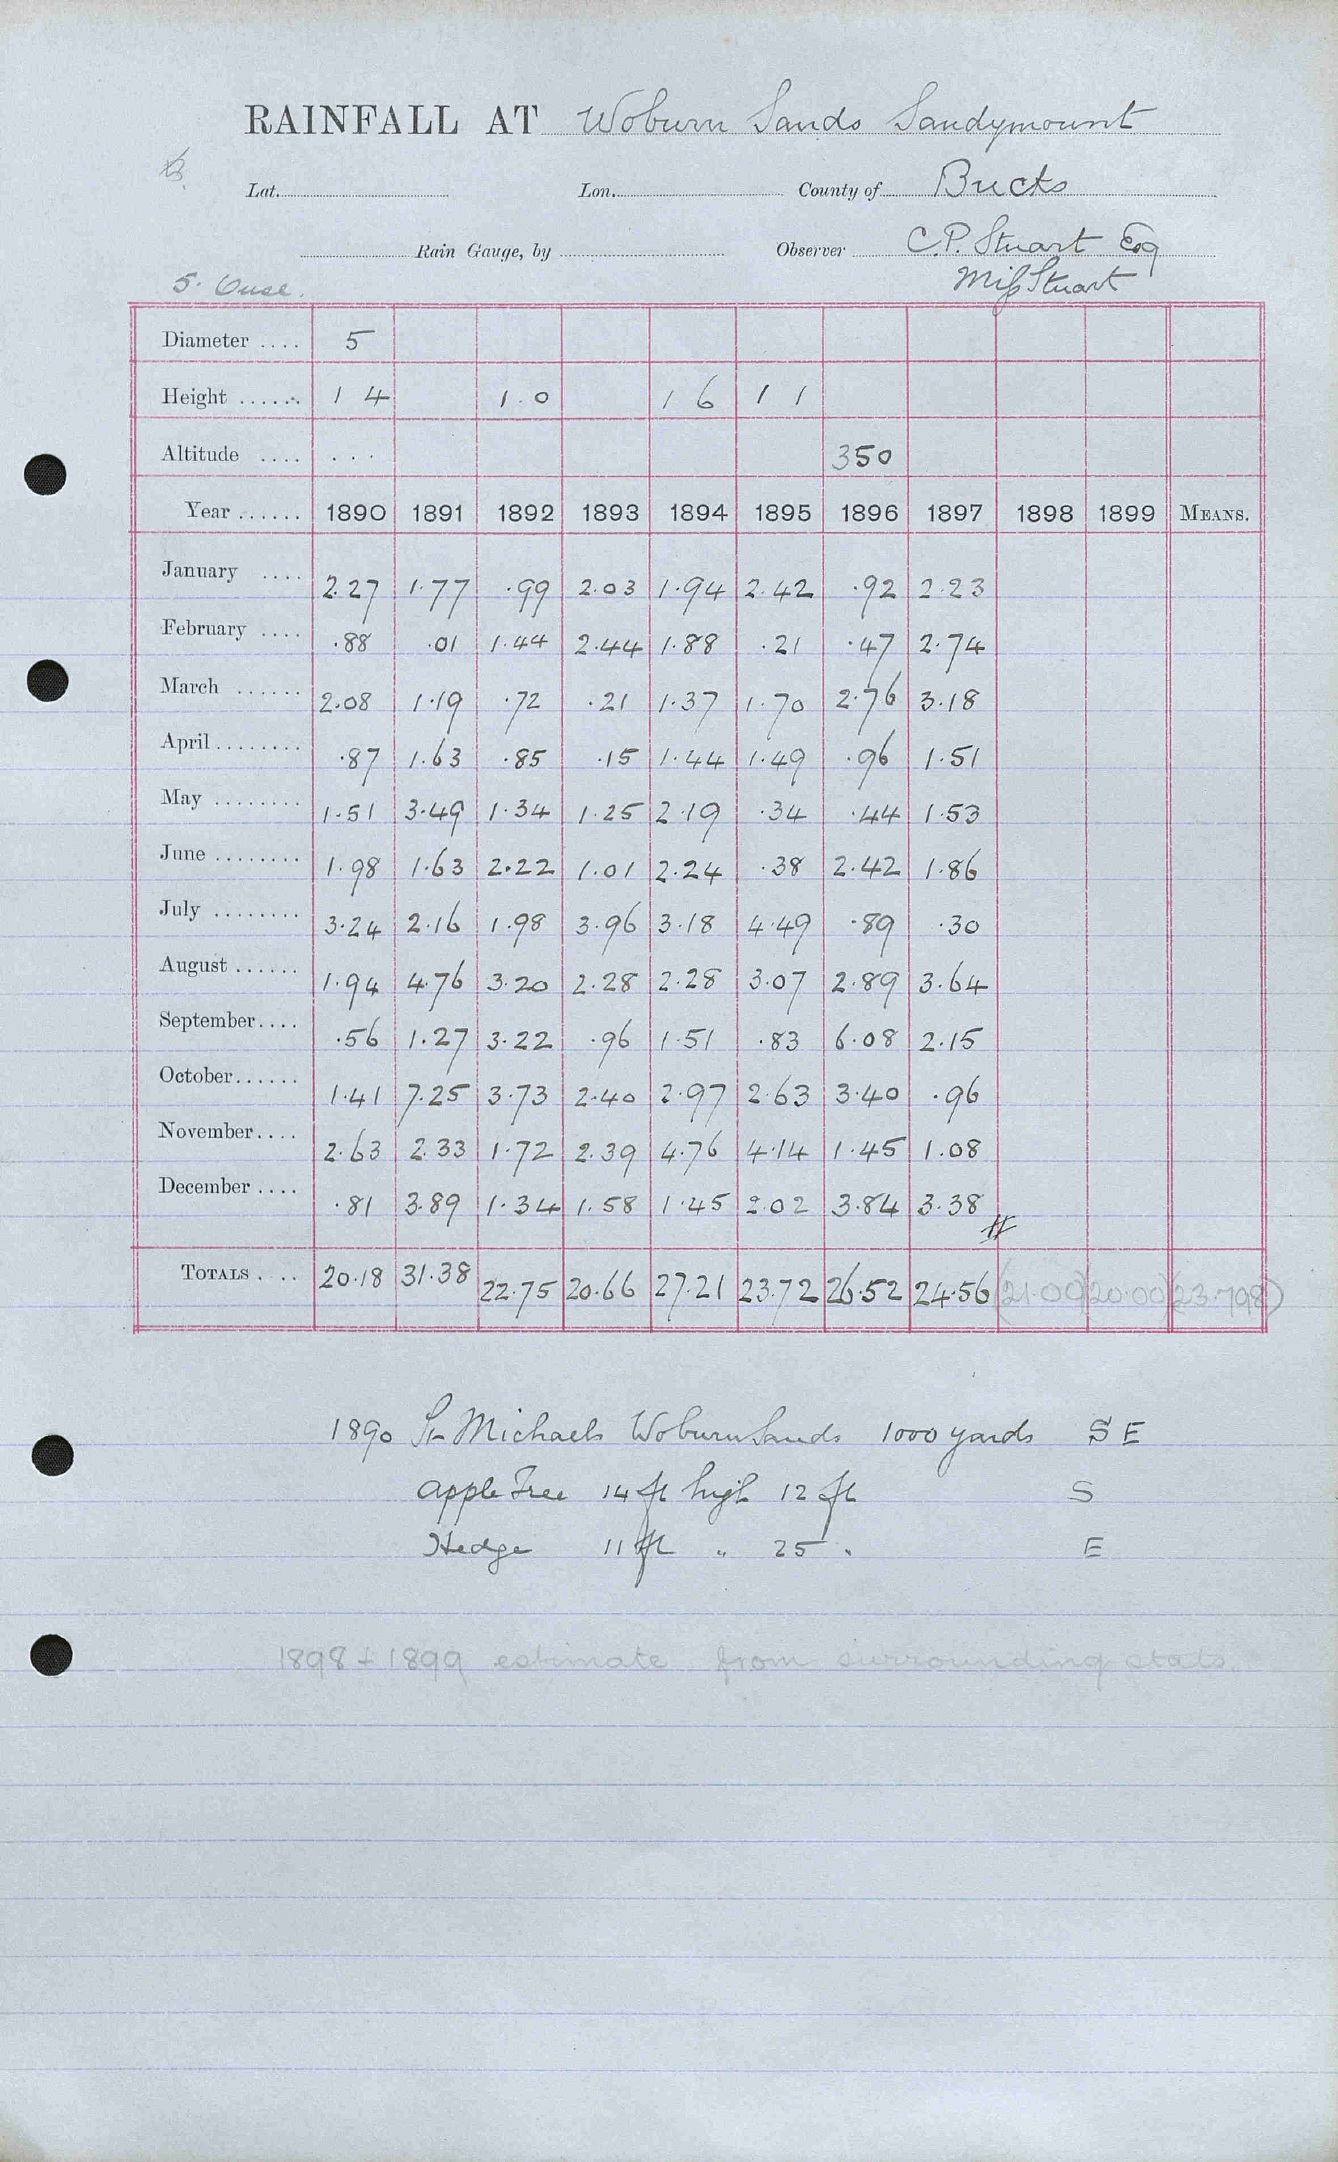 RAINFALL AT Woburn Sands Sandymount
Lat. Lon. County of Bucks
Rain Gauge, by Observer C.P. Stuart Esq
Miss Stuart
5. Ouse.
Diameter .... 5
Height ...... 1 4 1.0 1 6 1 1
Altitude .... ... 350
Year ...... 1890 1891 1892 1893 1894 1895 1896 1897 1898 1899 MEANS.
January .... 2.27 1.77 .99 2.03 1.94 2.42 .92 2.23
February .... .88 .01 1.44 2.44 1.88 .21 .47 2.74
March ...... 2.08 1.19 .72 .21 1.37 1.70 2.76 3.18
April ........ .87 1.63 .85 .15 1.44 1.49 .96 1.51
May ........ 1.51 3.49 1.34 1.25 2.19 .34 .44 1.53
June ........ 1.98 1.63 2.22 1.01 2.24 .38 2.42 1.86
July ........ 3.24 2.16 1.98 3.96 3.18 4.49 .89 .30
August ...... 1.94 4.76 3.20 2.28 2.28 3.07 2.89 3.64
September .... .56 1.27 3.22 .96 1.51 .83 6.08 2.15
October ...... 1.41 7.25 3.73 2.40 2.97 2.63 3.40 .96
November .... 2.63 2.33 1.72 2.39 4.76 4.14 1.45 1.08
December .... .81 3.89 1.34 1.58 1.45 2.02 3.84 3.38
TOTALS .... 20.18 31.38 22.75 20.66 27.21 23.72 26.52 24.56 (21.00) (20.00) (23.798)
1890 St Michaels Woburn Sands 1000 yards S E
Apple Tree 14 ft high 12 ft S
Hedge 11 ft " 25 " E
1898 + 1899 estimate from surrounding stats.